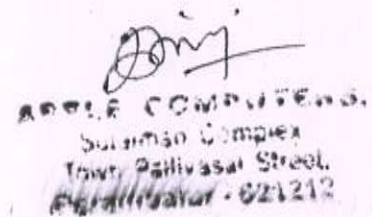 APPLE COMPUTERS,
Sulaiman Complex
Town Pallivasal Street,
621212